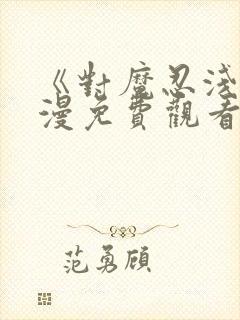 《對魔忍淺
漫免費觀看
范勇頤